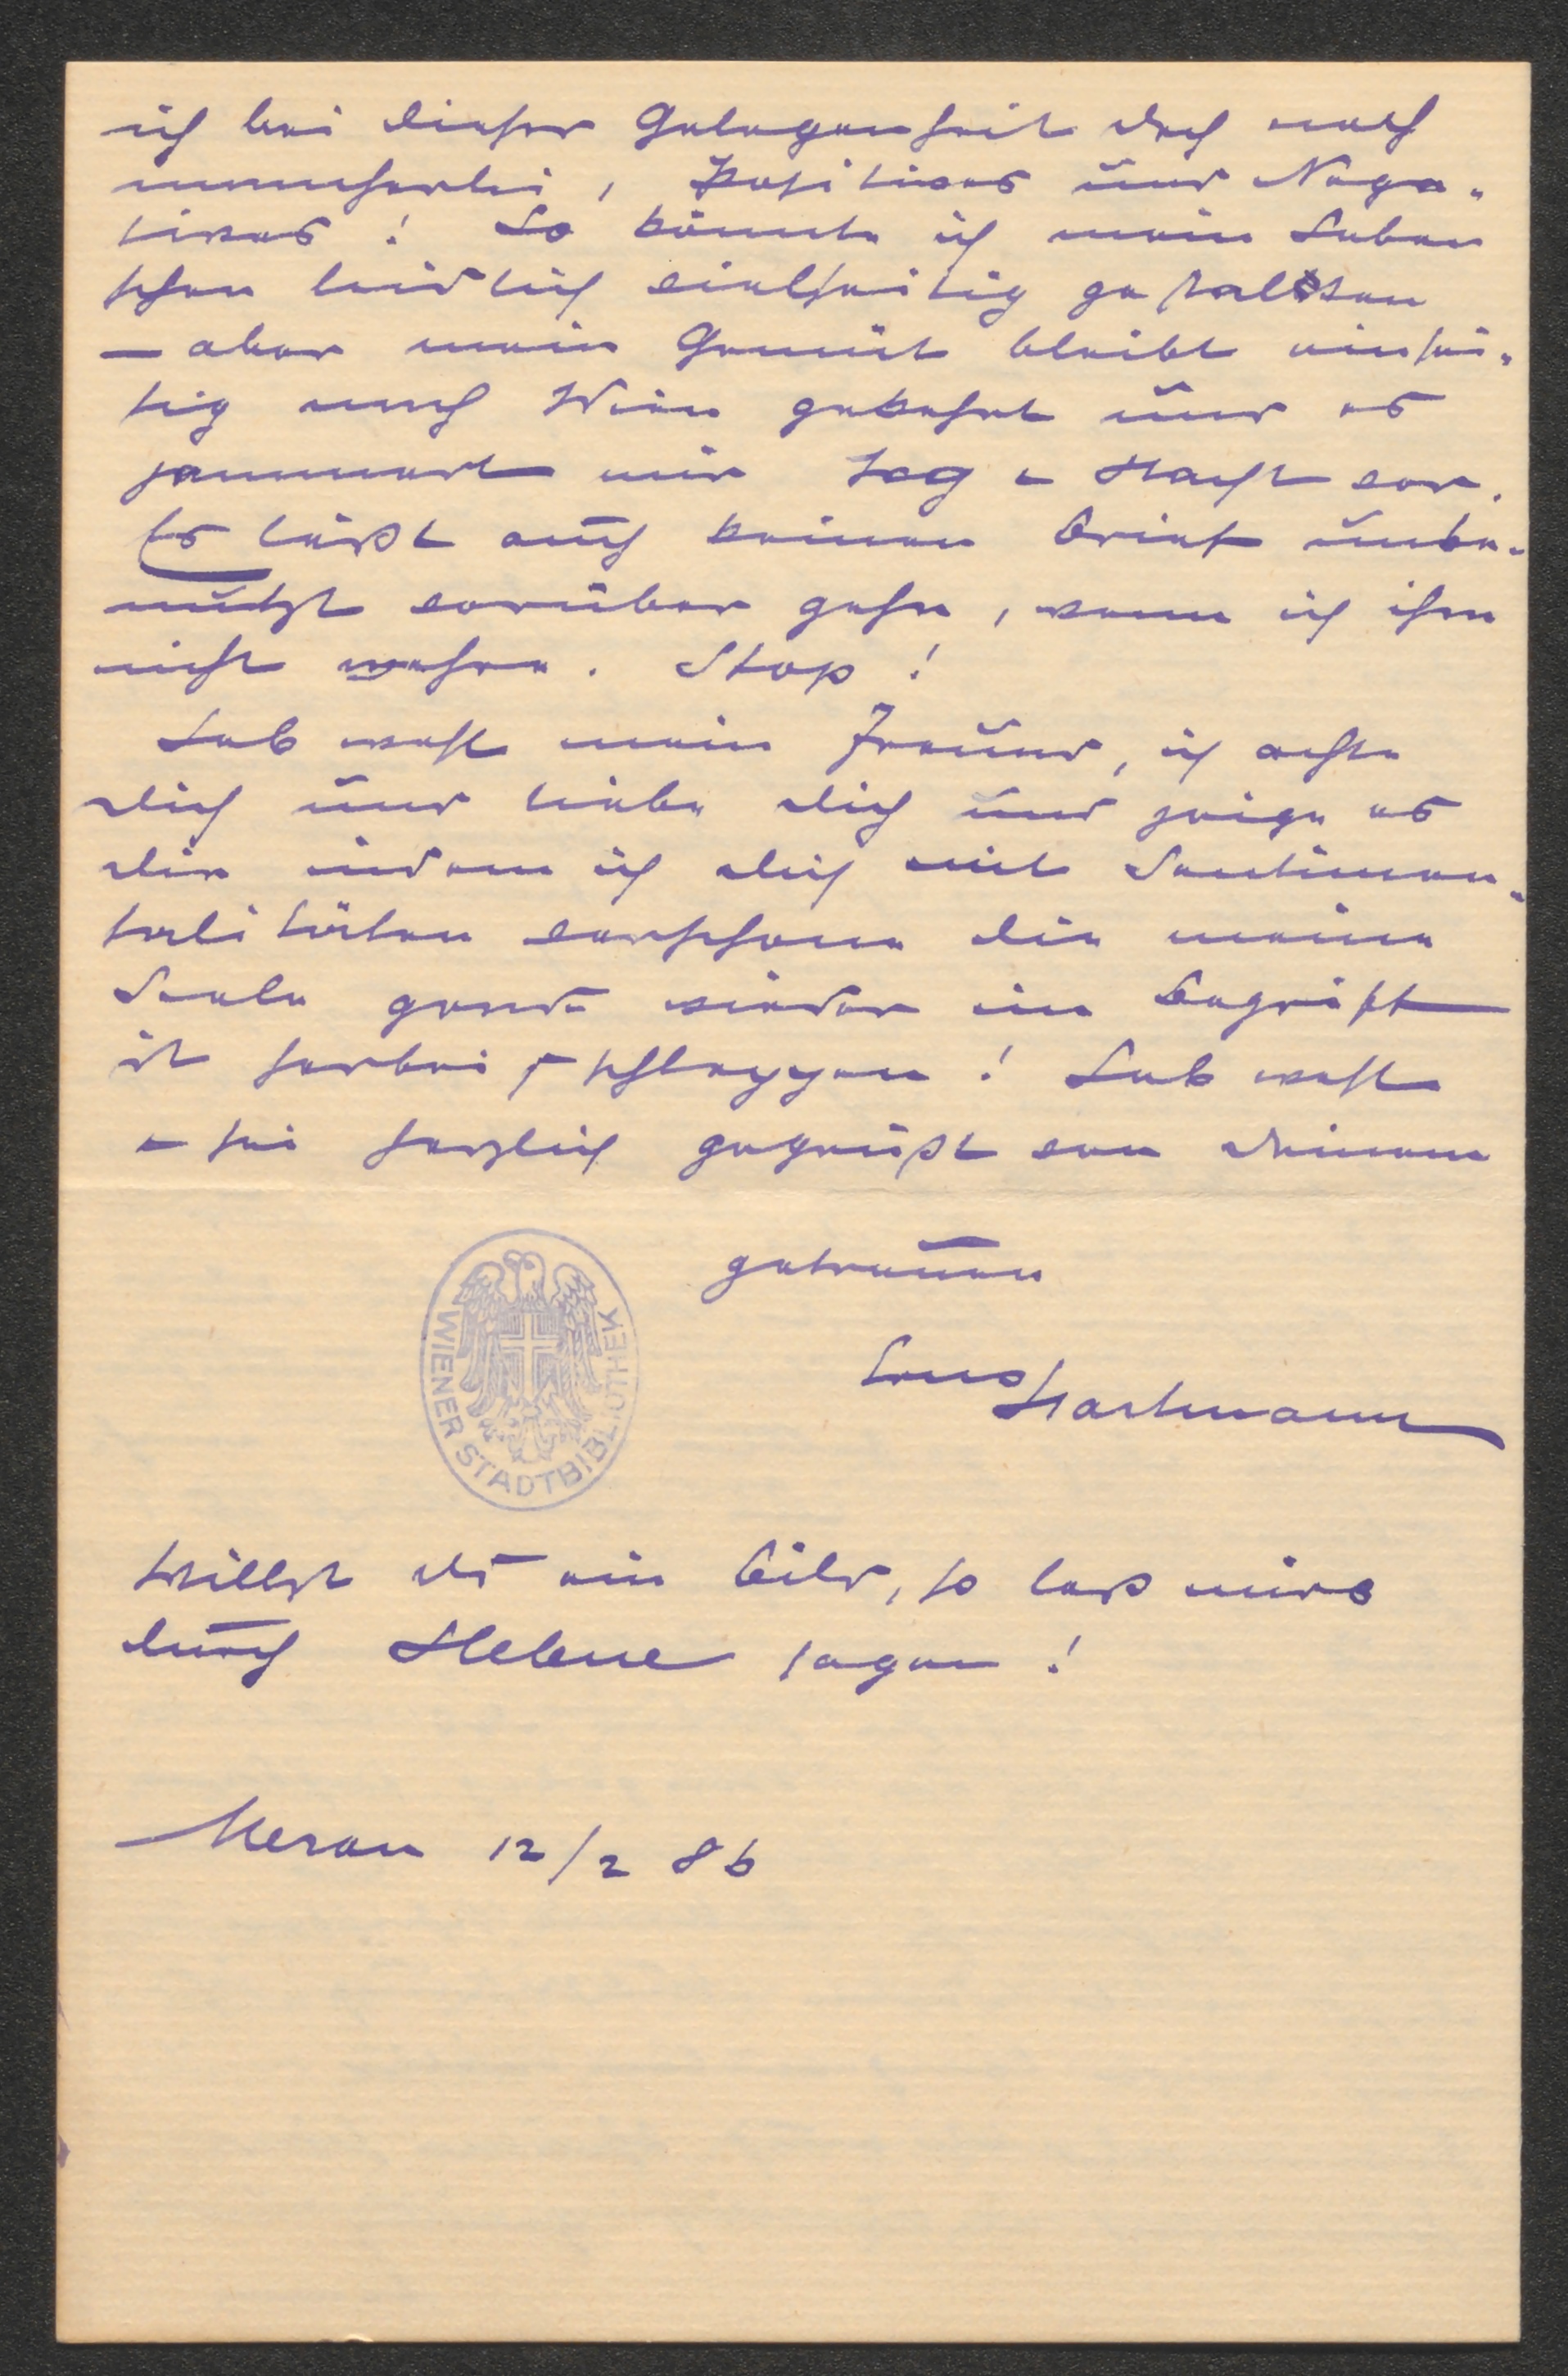 ich bei dieser Gelegenheit doch noch
mancherlei, Positives und Nega-
tives! So könnte ich mein Leben
schon leidlich vielseitig gestalten
— aber mein Gemüt bleibt einsei-
tig nach Wien gekehrt und es
jammert mir Tag u Nacht vor.
Es läßt auch keinen Brief unbe-
nützt vorüber gehn, wenn ich ihm
nicht wehre. Stop!
Leb wohl mein Freund, ich achte
dich und liebe dich und zeige es
dir indem ich dich mit Sentimen-
talitäten verschone die meine
Seele grade wieder im Begriff
ist herbei z schleppen! Leb wohl
u sei herzlich gegrüßt von deinem
getreuen
Hartmann
Willst du ein Bild, so laß mirs
durch Helene sagen!
Meran 12/2 86
WIENER STADTBIBLIOTHEK